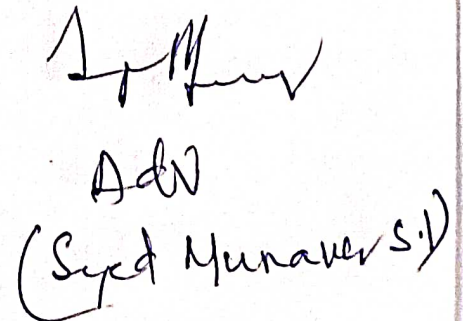 Adv
(Syed Munaver S.I)